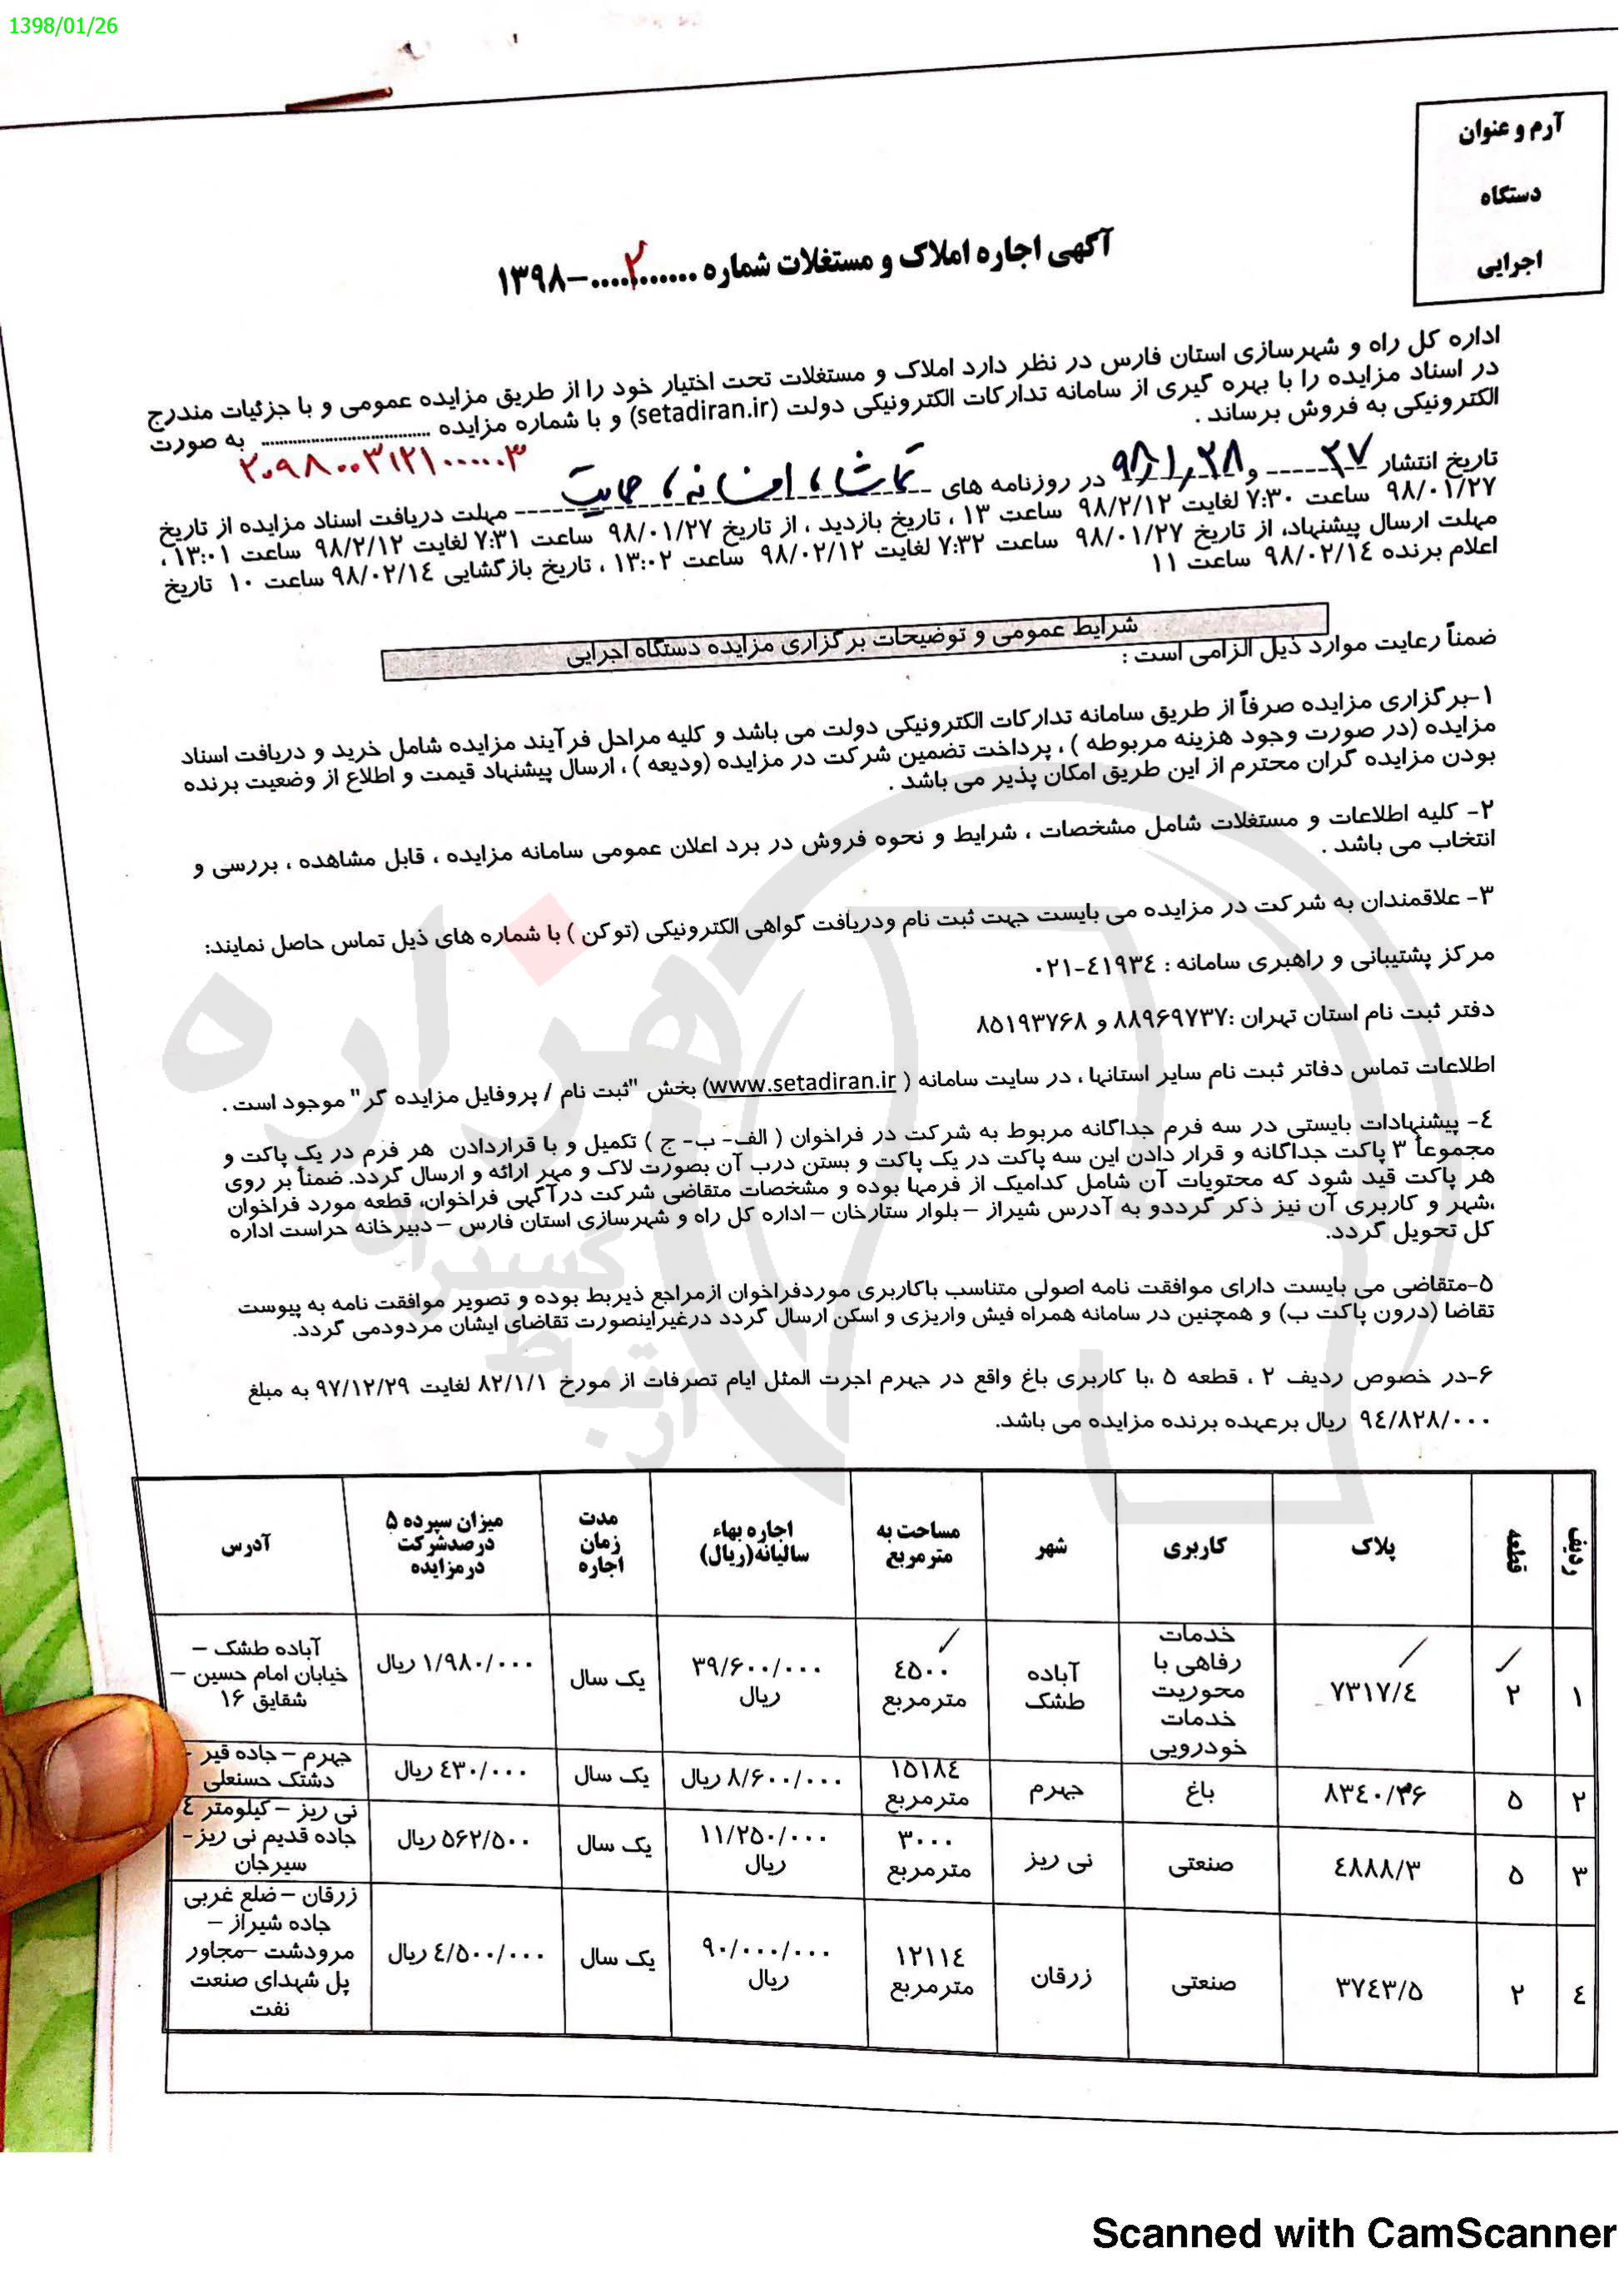 1398/01/26
آرم و عنوان
دستگاه
اجرایی
آگهی اجاره املاک و مستغلات شماره ......۲......-۱۳۹۸
اداره کل راه و شهرسازی استان فارس در نظر دارد املاک و مستغلات تحت اختیار خود را از طریق مزایده عمومی و با جزئیات مندرج
در اسناد مزایده را با بهره گیری از سامانه تدارکات الکترونیکی دولت (setadiran.ir) و با شماره مزایده ........................ به صورت
الکترونیکی به فروش برساند .
۲۰۹۸۰۰۳۱۲۱۰۰۰۰۰۳
تاریخ انتشار ۲۷ و ۹۸/۱/۲۸ در روزنامه های تماشا، افسانه، حمایت مهلت دریافت اسناد مزایده از تاریخ
۹۸/۰۱/۲۷ ساعت ۷:۳۰ لغایت ۹۸/۲/۱۲ ساعت ۱۳ ، تاریخ بازدید ، از تاریخ ۹۸/۰۱/۲۷ ساعت ۷:۳۱ لغایت ۹۸/۲/۱۲ ساعت ۱۳:۰۱ ،
مهلت ارسال پیشنهاد، از تاریخ ۹۸/۰۱/۲۷ ساعت ۷:۳۲ لغایت ۹۸/۰۲/۱۲ ساعت ۱۳:۰۲ ، تاریخ بازگشایی ۹۸/۰۲/۱٤ ساعت ۱۰ تاریخ
اعلام برنده ۹۸/۰۲/۱٤ ساعت ۱۱
شرایط عمومی و توضیحات برگزاری مزایده دستگاه اجرایی
ضمناً رعایت موارد ذیل الزامی است :
۱-برگزاری مزایده صرفاً از طریق سامانه تدارکات الکترونیکی دولت می باشد و کلیه مراحل فرآیند مزایده شامل خرید و دریافت اسناد
مزایده (در صورت وجود هزینه مربوطه ) ، پرداخت تضمین شرکت در مزایده (ودیعه ) ، ارسال پیشنهاد قیمت و اطلاع از وضعیت برنده
بودن مزایده گران محترم از این طریق امکان پذیر می باشد .
۲- کلیه اطلاعات و مستغلات شامل مشخصات ، شرایط و نحوه فروش در برد اعلان عمومی سامانه مزایده ، قابل مشاهده ، بررسی و
انتخاب می باشد .
۳- علاقمندان به شرکت در مزایده می بایست جهت ثبت نام ودریافت گواهی الکترونیکی (توکن ) با شماره های ذیل تماس حاصل نمایند:
مرکز پشتیبانی و راهبری سامانه : ٤۱۹۳٤-۰۲۱
دفتر ثبت نام استان تهران :۸۸۹۶۹۷۳۷ و ۸۵۱۹۳۷۶۸
اطلاعات تماس دفاتر ثبت نام سایر استانها ، در سایت سامانه (www.setadiran.ir) بخش "ثبت نام / پروفایل مزایده گر" موجود است .
٤- پیشنهادات بایستی در سه فرم جداگانه مربوط به شرکت در فراخوان ( الف- ب- ج ) تکمیل و با قراردادن هر فرم در یک پاکت و
مجموعاً ۳ پاکت جداگانه و قرار دادن این سه پاکت در یک پاکت و بستن درب آن بصورت لاک و مهر ارائه و ارسال گردد. ضمناً بر روی
هر پاکت قید شود که محتویات آن شامل کدامیک از فرمها بوده و مشخصات متقاضی شرکت درآگهی فراخوان، قطعه مورد فراخوان
،شهر و کاربری آن نیز ذکر گرددو به آدرس شیراز –بلوار ستارخان –اداره کل راه و شهرسازی استان فارس –دبیرخانه حراست اداره
کل تحویل گردد.
۵-متقاضی می بایست دارای موافقت نامه اصولی متناسب باکاربری موردفراخوان ازمراجع ذیربط بوده و تصویر موافقت نامه به پیوست
تقاضا (درون پاکت ب) و همچنین در سامانه همراه فیش واریزی و اسکن ارسال گردد درغیراینصورت تقاضای ایشان مردودمی گردد.
۶-در خصوص ردیف ۲ ، قطعه ۵ ،با کاربری باغ واقع در جهرم اجرت المثل ایام تصرفات از مورخ ۸۲/۱/۱ لغایت ۹۷/۱۲/۲۹ به مبلغ
۹٤/۸۲۸/۰۰۰ ریال برعهده برنده مزایده می باشد.
ردیف قطعه پلاک کاربری شهر مساحت به مترمربع اجاره بهاء سالیانه(ریال) مدت زمان اجاره میزان سپرده ۵ درصدشرکت درمزایده آدرس
۱ ۲ ۷۳۱۷/٤ خدمات رفاهی با محوریت خدمات خودرویی آباده طشک ٤۵۰۰ مترمربع ۳۹/۶۰۰/۰۰۰ ریال یک سال ۱/۹۸۰/۰۰۰ ریال آباده طشک – خیابان امام حسین – شقایق ۱۶
۲ ۵ ۸۳٤۰/۳۶ باغ جهرم ۱۵۱۸٤ مترمربع ۸/۶۰۰/۰۰۰ ریال یک سال ٤۳۰/۰۰۰ ریال جهرم – جاده قیر - دشتک حسنعلی
۳ ۵ ٤۸۸۸/۳ صنعتی نی ریز ۳۰۰۰ مترمربع ۱۱/۲۵۰/۰۰۰ ریال یک سال ۵۶۲/۵۰۰ ریال نی ریز – کیلومتر ٤ جاده قدیم نی ریز- سیرجان
٤ ۲ ۳۷٤۳/۵ صنعتی زرقان ۱۲۱۱٤ مترمربع ۹۰/۰۰۰/۰۰۰ ریال یک سال ٤/۵۰۰/۰۰۰ ریال زرقان – ضلع غربی جاده شیراز – مرودشت –مجاور پل شهدای صنعت نفت
هزاره
گستران
ارتباط
آرن
Scanned with CamScanner